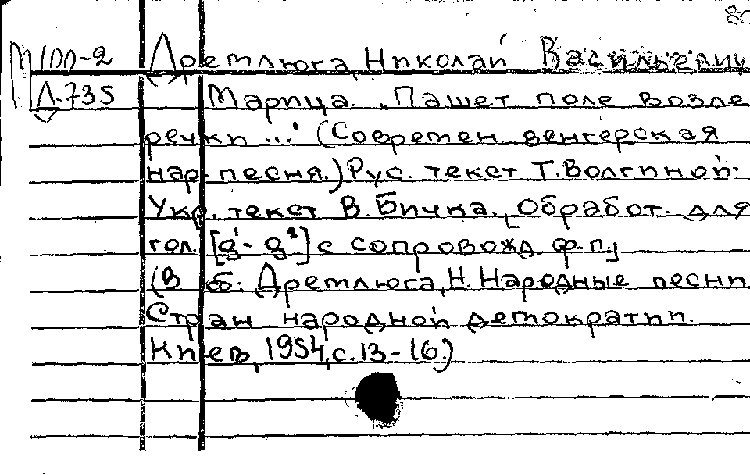 М100-2 Дремлюга, Николай Васильевич
Д.735 Марица. „Пашет поле возле
речки..." (Современ. венгерская
нар. песня.) Рус. текст Т. Волгиной.
Укр. текст В. Бичка. [Обработ. для
гол. [g¹-g²] с сопровожд. ф.п.]
(В сб: Дремлюга, Н. Народные песни
стран народной демократии.
Киев, 1954, с. 13-16.)